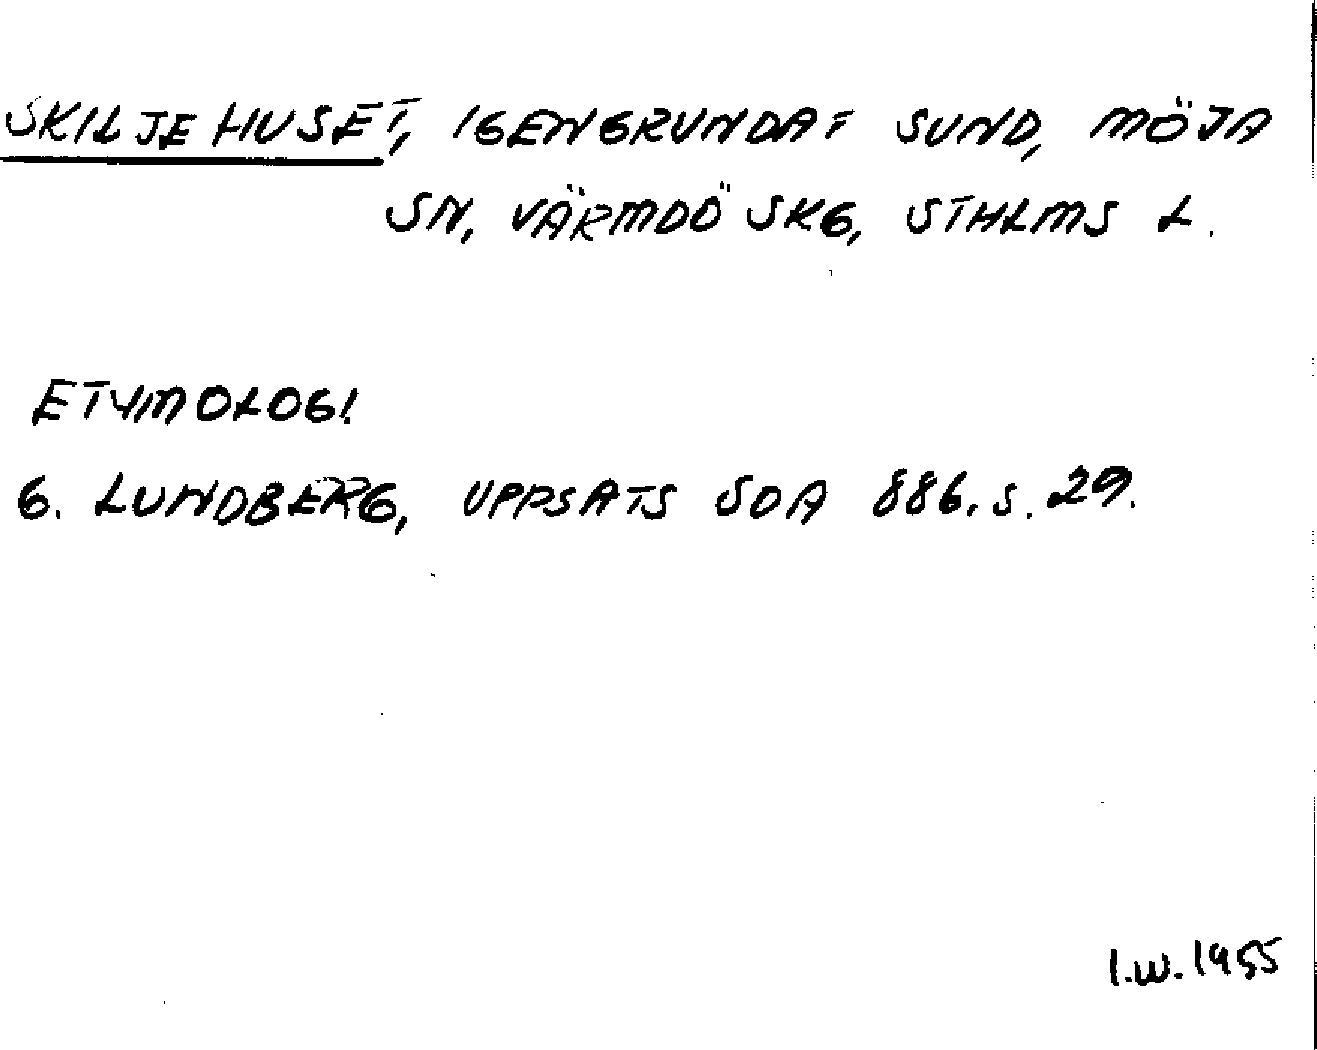 SKILJEHUSET, IGENGRUNDAT SUND, MÖJA
SN, VÄRMDÖ SKG, STHLMS L.
ETYMOLOGI
G. LUNDBERG, UPPSATS SOA 886. S. 29.
I.W. 1955